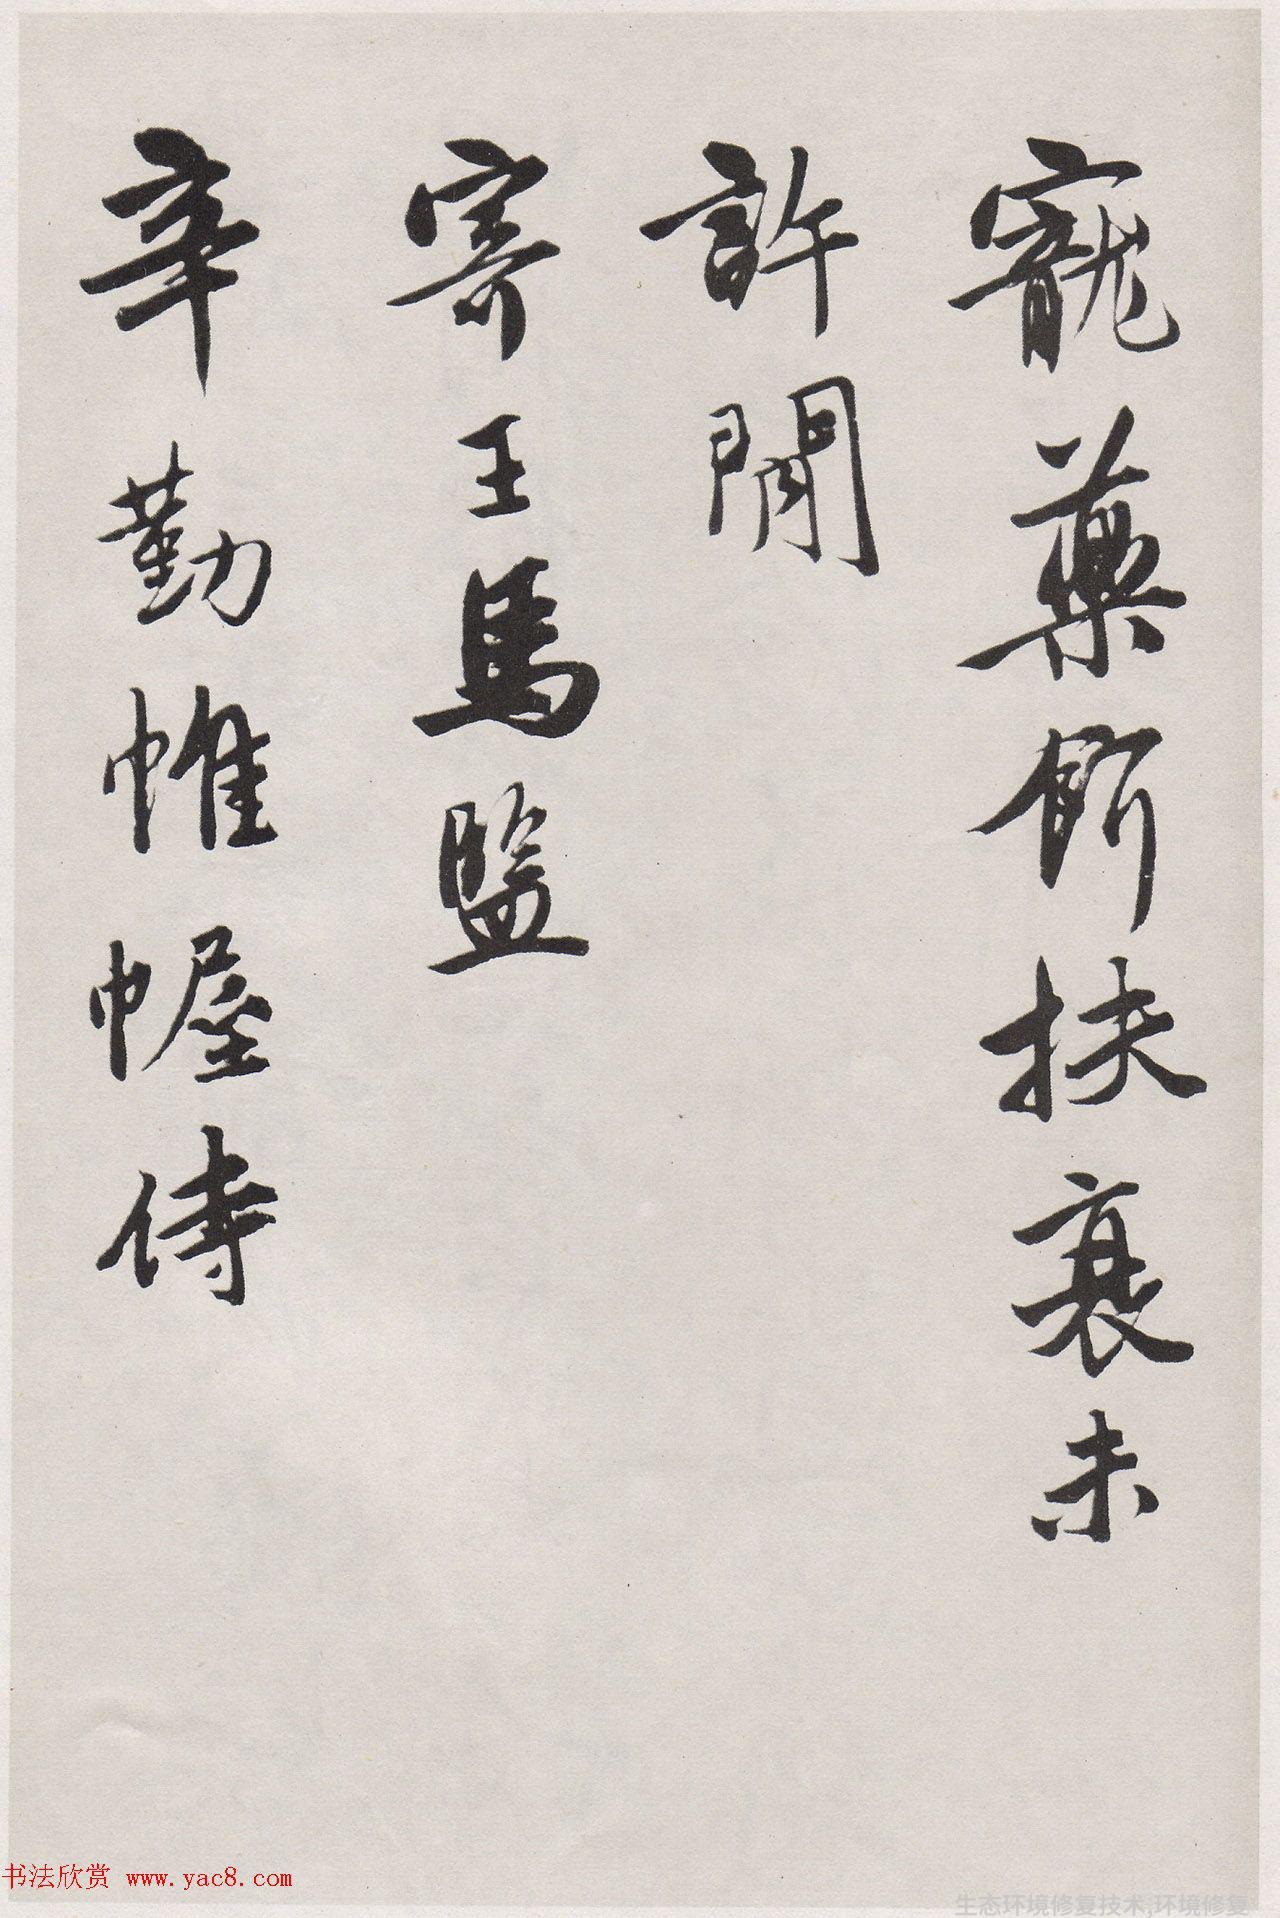 寵藥餌扶衰未
許閒
寄王馬監
辛勤帷幄侍
书法欣赏 www.yac8.com
生态环境修复技术,环境修复